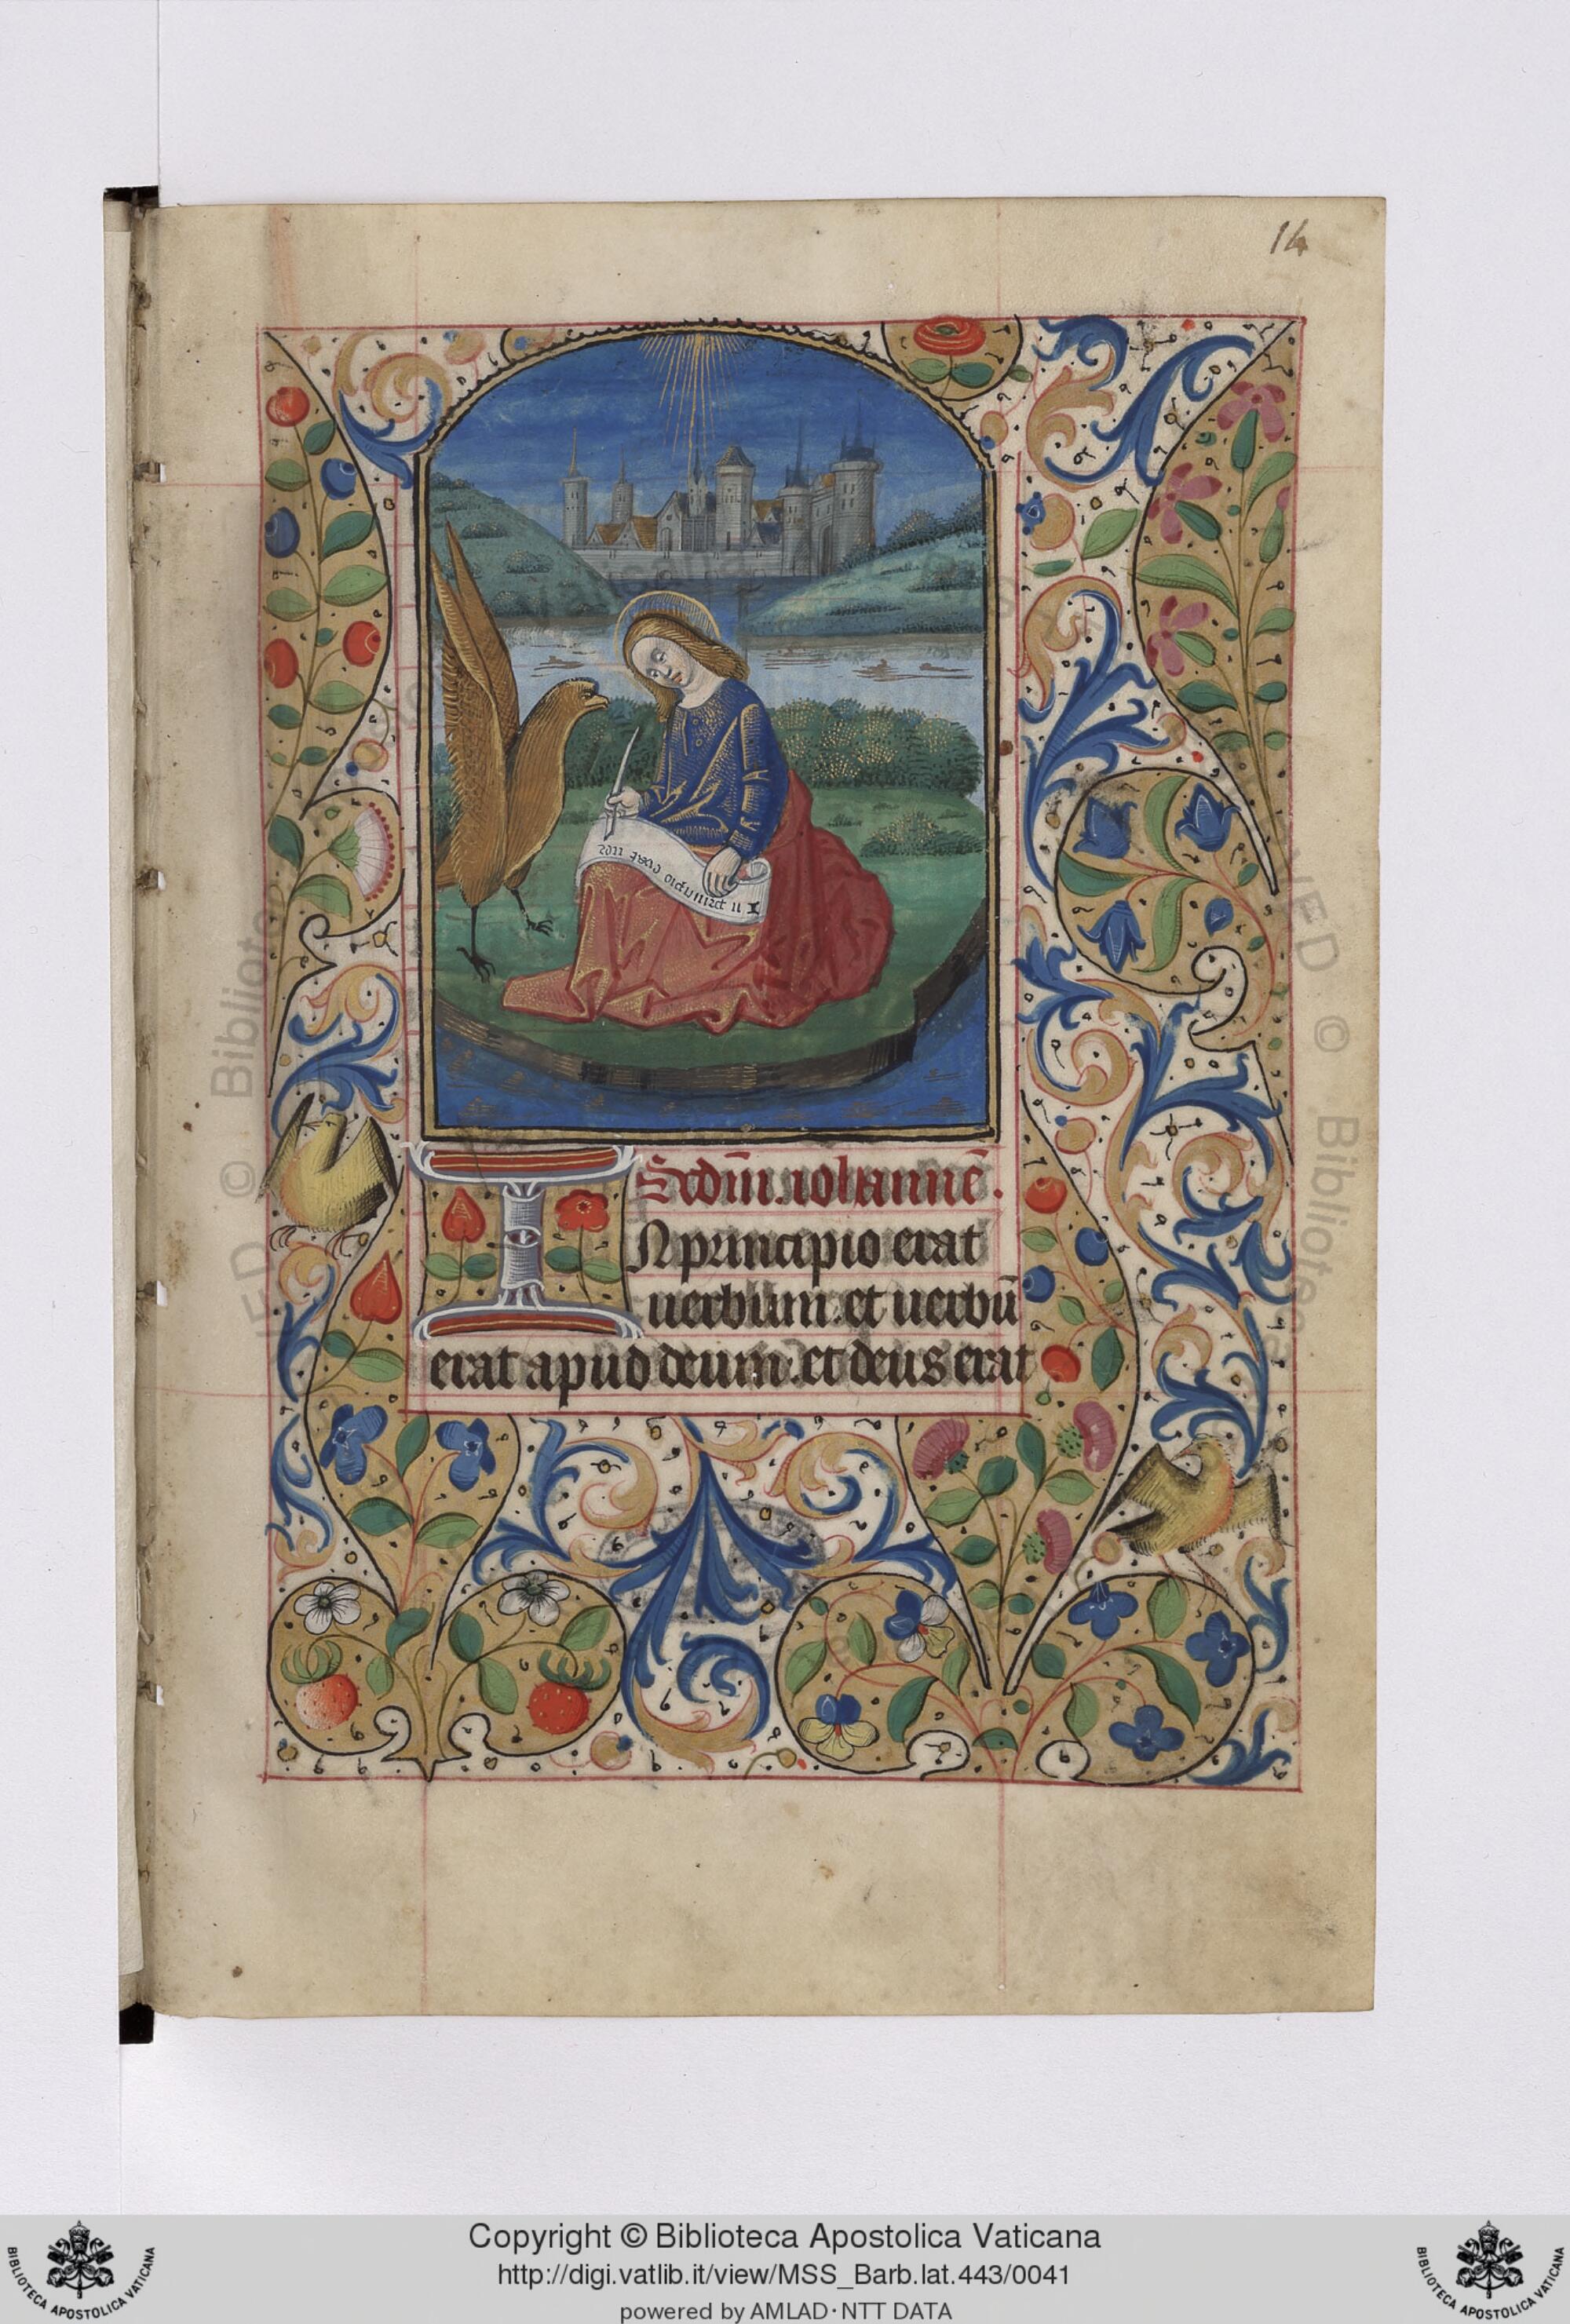 14
Scdm̄. iohannē.
IN principio erat
uerbum. et uerbū
erat apud deum: et deus erat
Copyright © Biblioteca Apostolica Vaticana
http://digi.vatlib.it/view/MSS_Barb.lat.443/0041
powered by AMLAD·NTT DATA
BIBLIOTECA APOSTOLICA VATICANA
BIBLIOTECA APOSTOLICA VATICANA